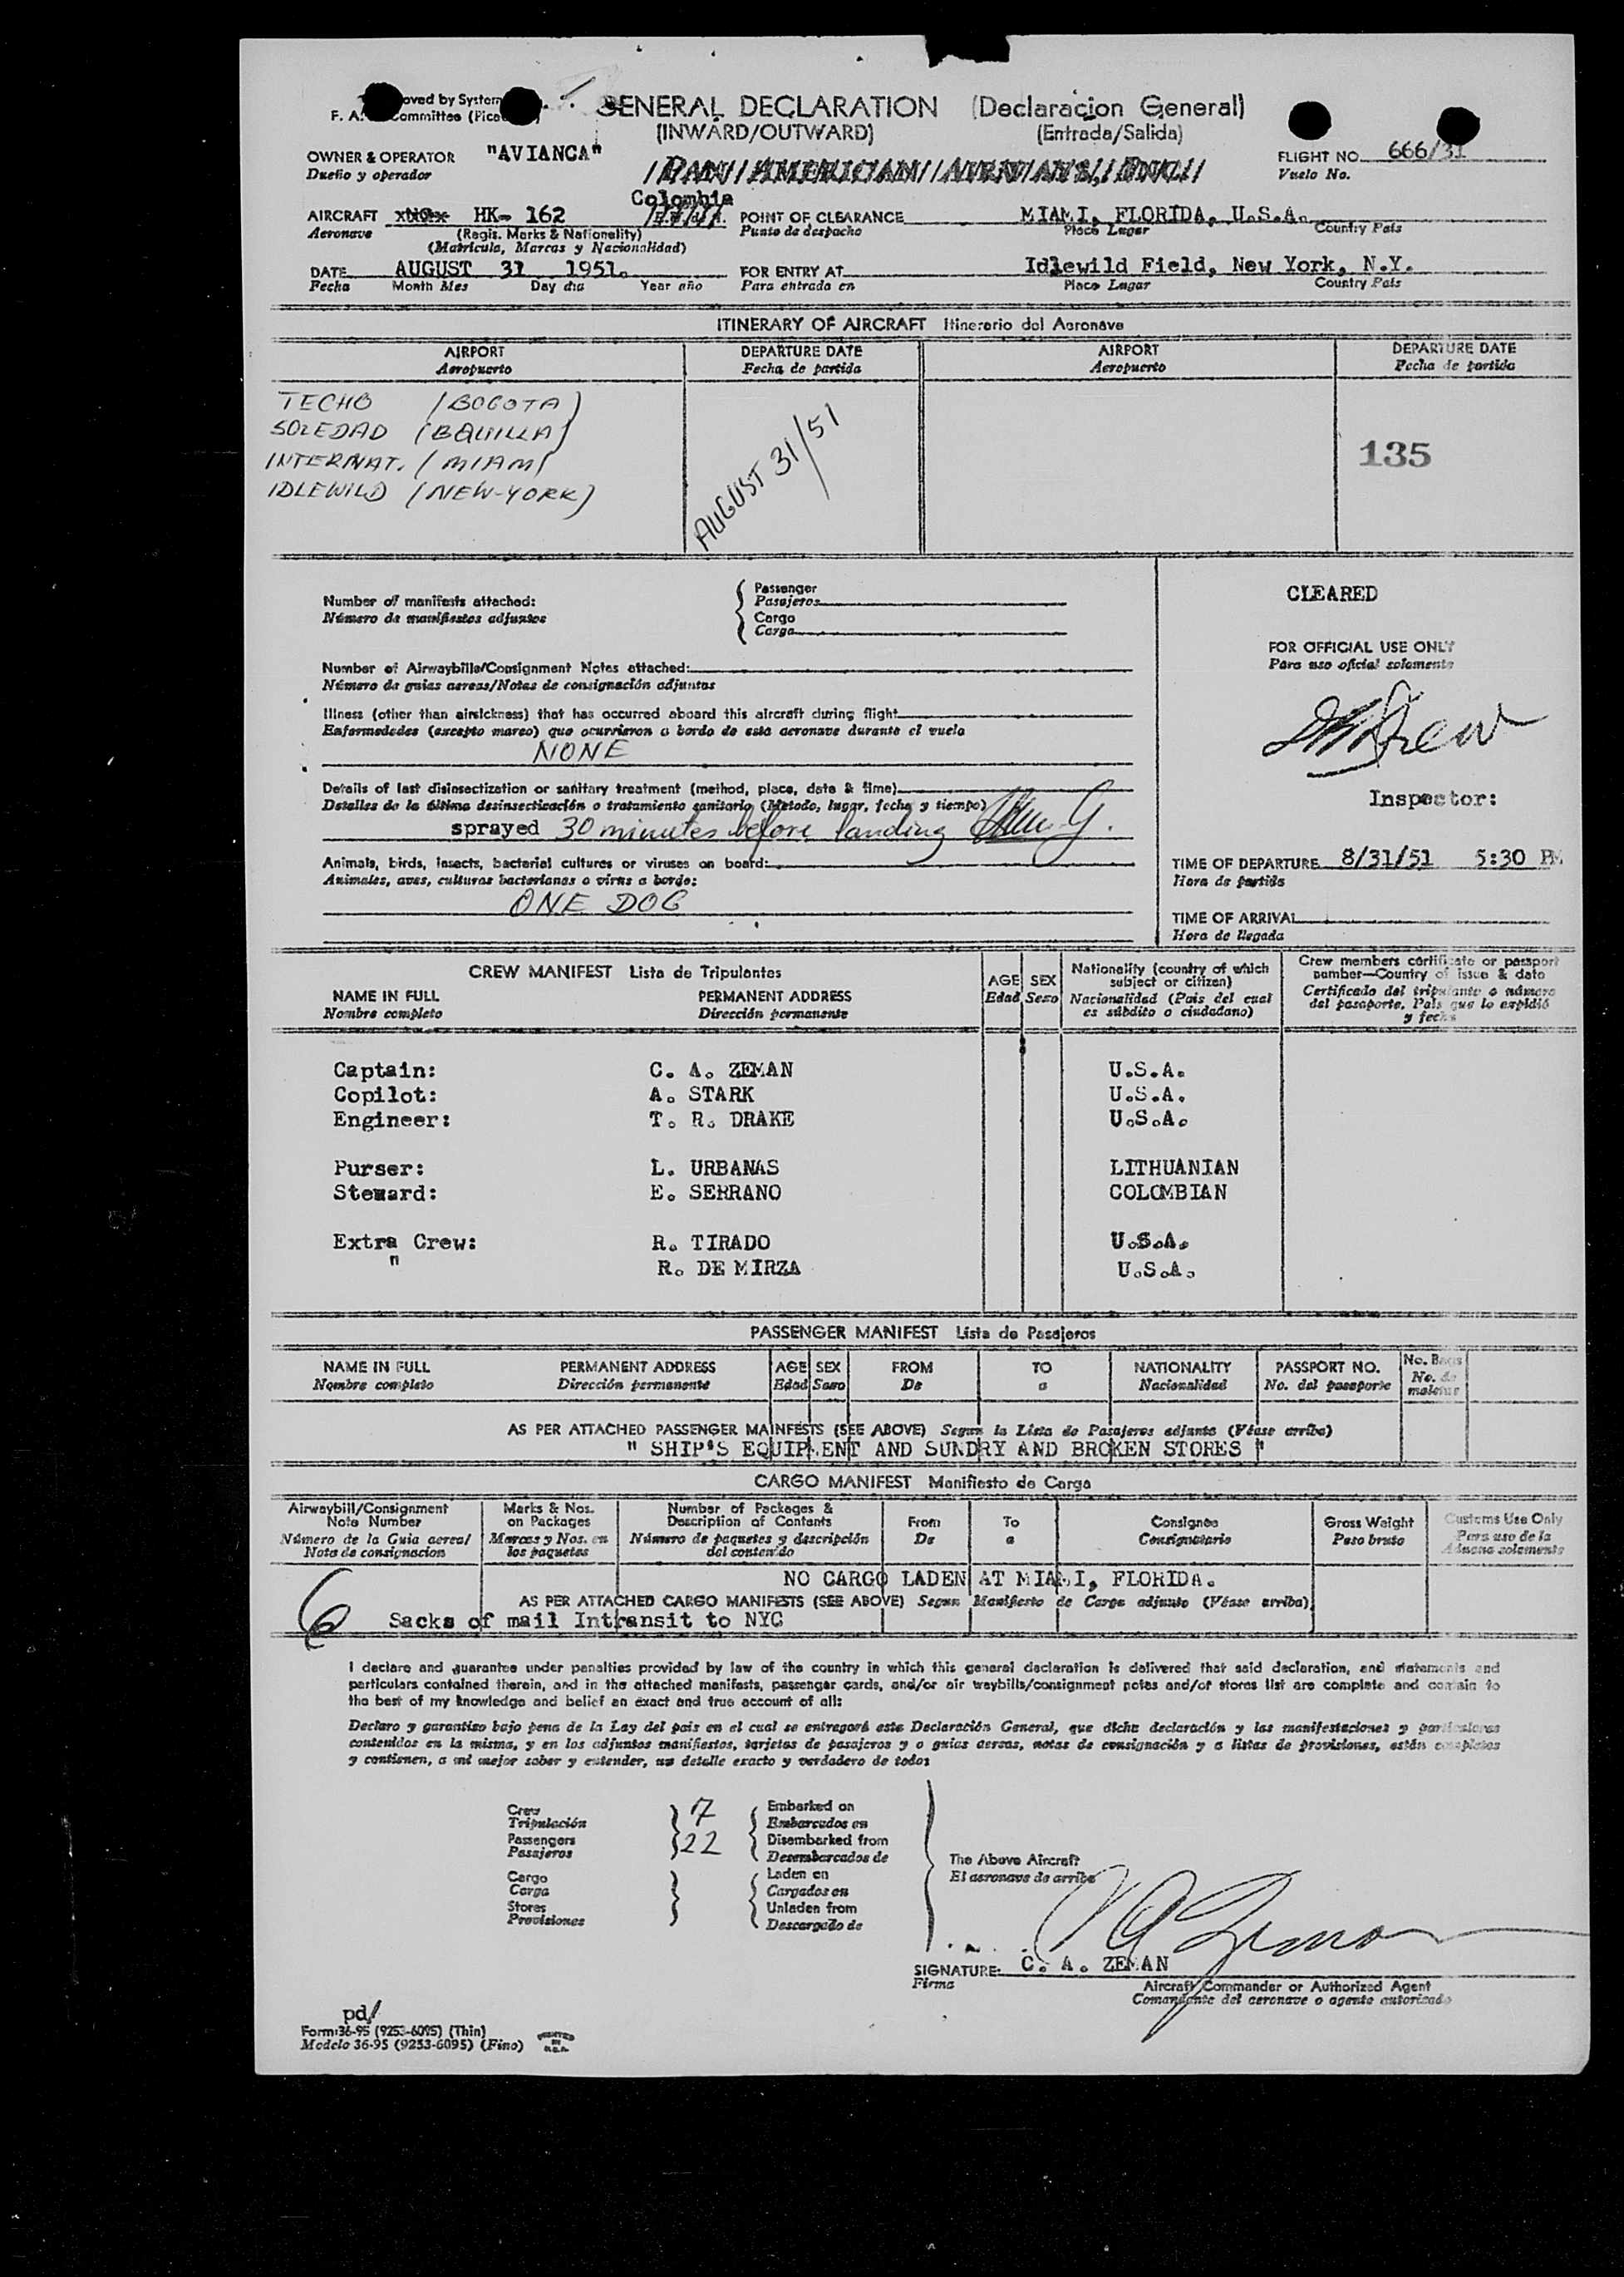 GENERAL DECLARATION (Declaracion General)
(INWARD/OUTWARD) (Entrada/Salida)
oved by System
F. A. Committee
OWNER & OPERATOR "AVIANCA" PAN AMERICAN AIRWAYS, INC. FLIGHT NO. 666/31
Dueño y operador Vuelo No.
Colombia
AIRCRAFT xNOxx HK- 162 U.S.A. POINT OF CLEARANCE MIAMI, FLORIDA, U.S.A.
Aeronave (Regis. Marks & Nationality) Punto de despacho Place Lugar Country Pais
(Matricula, Marcas y Nacionalidad)
DATE AUGUST 31 1951. FOR ENTRY AT Idlewild Field, New York, N.Y.
Fecha Month Mes Day dia Year año Para entrada en Place Lugar Country Pais
ITINERARY OF AIRCRAFT Itinerario del Aeronave
AIRPORT DEPARTURE DATE AIRPORT DEPARTURE DATE
Aeropuerto Fecha de partida Aeropuerto Fecha de partida
TECHO (BOGOTA)
SOLEDAD (BQUILLA)
INTERNAT. (MIAMI
IDLEWILD (NEW-YORK)
AUGUST 31/51
135
Number of manifests attached: Passenger
Número de manifiestos adjuntos Pasajeros
Cargo
Carga
CLEARED
FOR OFFICIAL USE ONLY
Para uso oficial solamente
Number of Airwaybills/Consignment Notes attached:
Número de guias aereas/Notas de consignación adjuntas
Illness (other than airsickness) that has occurred aboard this aircraft during flight
Enfermedades (excepto mareo) que ocurrieron a bordo de esta aeronave durante el vuelo
NONE
Details of last disinsectization or sanitary treatment (method, place, date & time)
Detalles de la última desinsectización o tratamiento sanitario (Metodo, lugar, fecha y tiempo)
sprayed 30 minutes before landing
Inspector:
Animals, birds, insects, bacterial cultures or viruses on board:
Animales, aves, culturas bacterianas o virus a bordo:
ONE DOG
TIME OF DEPARTURE 8/31/51 5:30 PM
Hora de partida
TIME OF ARRIVAL
Hora de llegada
CREW MANIFEST Lista de Tripulantes
NAME IN FULL PERMANENT ADDRESS AGE SEX Nationality (country of which subject or citizen)
Nombre completo Dirección permanente Edad Sexo Nacionalidad (Pais del cual es súbdito o ciudadano)
Crew members certificate or passport number—Country of issue & date
Certificado del tripulante o número del pasaporte, Pais que lo expidió y fecha
Captain: C. A. ZEMAN U.S.A.
Copilot: A. STARK U.S.A.
Engineer: T. R. DRAKE U.S.A.
Purser: L. URBANAS LITHUANIAN
Steward: E. SERRANO COLOMBIAN
Extra Crew: R. TIRADO U.S.A.
" R. DE MIRZA U.S.A.
PASSENGER MANIFEST Lista de Pasajeros
NAME IN FULL PERMANENT ADDRESS AGE SEX FROM TO NATIONALITY PASSPORT NO. No. Bags
Nombre completo Dirección permanente Edad Sexo De a Nacionalidad No. del pasaporte No. de maletas
AS PER ATTACHED PASSENGER MAINFESTS (SEE ABOVE) Segun la Lista de Pasajeros adjunta (Véase arriba)
" SHIP'S EQUIPMENT AND SUNDRY AND BROKEN STORES "
CARGO MANIFEST Manifiesto de Carga
Airwaybill/Consignment Note Number Marks & Nos. on Packages Number of Packages & Description of Contents From To Consignee Gross Weight Customs Use Only
Número de la Guia aerea/ Nota de consignacion Marcas y Nos. en los paquetes Número de paquetes y descripción del contenido De a Consignatario Peso bruto Para uso de la Aduana solamente
NO CARGO LADEN AT MIAMI, FLORIDA.
AS PER ATTACHED CARGO MANIFESTS (SEE ABOVE) Segun Manifiesto de Carga adjunto (Véase arriba)
6 Sacks of mail Intransit to NYC
I declare and guarantee under penalties provided by law of the country in which this general declaration is delivered that said declaration, and statements and
particulars contained therein, and in the attached manifests, passenger cards, and/or air waybills/consignment notes and/or stores list are complete and contain to
the best of my knowledge and belief an exact and true account of all:
Declaro y garantizo bajo pena de la Ley del pais en el cual se entregará esta Declaración General, que dicha declaración y las manifestaciones y particulares
contenidos en la misma, y en los adjuntos manifiestos, tarjetas de pasajeros y o guias aereas, notas de consignación y o listas de provisiones, están completos
y contienen, a mi mejor saber y entender, un detalle exacto y verdadero de todo:
Crew 7 Embarked on
Tripulación Embarcados en
Passengers 22 Disembarked from
Pasajeros Desembarcados de
Cargo Laden on
Carga Cargados en
Stores Unladen from
Provisiones Descargado de
The Above Aircraft
El aeronave de arriba
C A Zeman
SIGNATURE: C. A. ZEMAN
Firma Aircraft Commander or Authorized Agent
Comandante del aeronave o agente autorizado
pd/
Form:36-95 (9253-6095) (Thin)
Modelo 36-95 (9253-6095) (Fino)
PRINTED IN U.S.A.